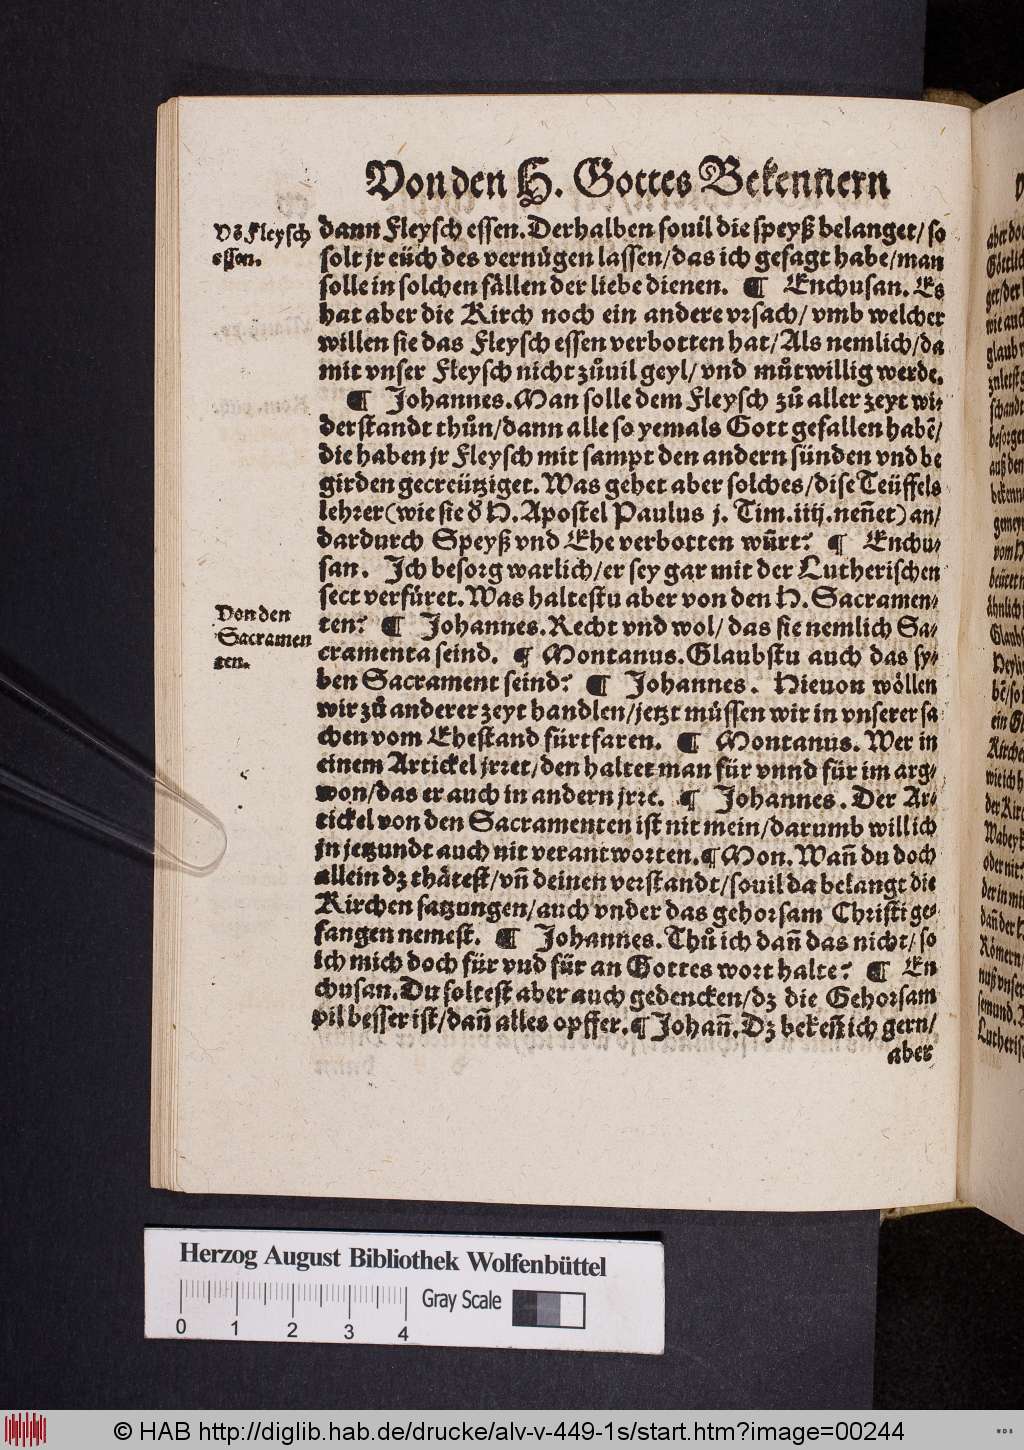 Von den H. Gottes Bekennern
Võ Fleysch
essen.
dann Fleysch essen. Derhalben souil die speyß belanget/ so
solt jr eüch des vernügen lassen/ das ich gesagt habe/ man
solle in solchen fällen der liebe dienen. ¶ Enchusan. Es
hat aber die Kirch noch ein andere vrsach/ vmb welcher
willen sie das Fleysch essen verbotten hat/ Als nemlich/ da
mit vnser Fleysch nicht zůuil geyl/ vnd můtwillig werde.
¶ Johannes. Man solle dem Fleysch zů aller zeyt wi-
derstandt thůn/ dann alle so yemals Gott gefallen habẽ/
die haben jr Fleysch mit sampt den andern sünden vnd be
girden gecreütziget. Was gehet aber solches/ dise Teüffels
lehrer (wie sie d̕ H. Apostel Paulus j. Tim. iiij. neñet) an/
dardurch Speyß vnd Ehe verbotten würt? ¶ Enchu-
san. Ich besorg warlich/ er sey gar mit der Lutherischen
sect verfüret. Was haltestu aber von den H. Sacramen-
Von den
Sacramen
ten.
ten? ¶ Johannes. Recht vnd wol/ das sie nemlich Sa-
cramenta seind. ¶ Montanus. Glaubstu auch das sy-
ben Sacrament seind? ¶ Johannes. Hieuon wöllen
wir zů anderer zeyt handlen/ jetzt müssen wir in vnserer sa
chen vom Ehestand fürtfaren. ¶ Montanus. Wer in
einem Artickel jrret/ den haltet man für vnnd für im arg-
won/ das er auch in andern jrre. ¶ Johannes. Der Ar-
tickel von den Sacramenten ist nit mein/ darumb will ich
jn jetzundt auch nit verantworten. ¶ Mon. Wañ du doch
allein dz thätest/ vñ deinen verstandt/ souil da belangt die
Kirchen satzungen/ auch vnder das gehorsam Christi ge-
fangen nemest. ¶ Johannes. Thů ich dañ das nicht/ so
ich mich doch für vnd für an Gottes wort halte? ¶ En
chusan. Du soltest aber auch gedencken/ dz die Gehorsam
vil besser ist/ dañ alles opffer. ¶ Johañ. Dz bekeñ ich gern/
aber
Herzog August Bibliothek Wolfenbüttel
Gray Scale
0 1 2 3 4
© HAB http://diglib.hab.de/drucke/alv-v-449-1s/start.htm?image=00244